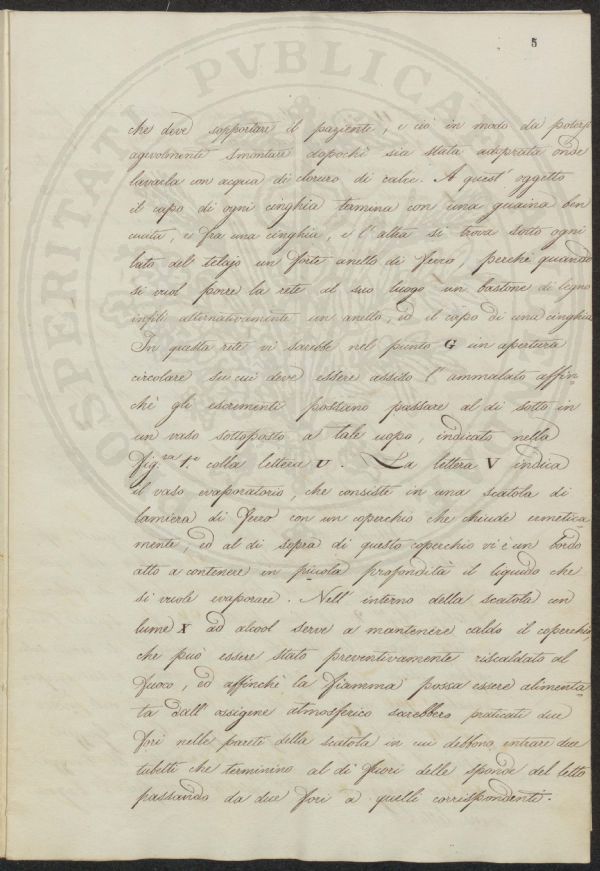 5
che deve sopportare il paziente, e ciò in modo da potersi
agevolmente smontare dopochè sia stata adoprata onde
lavarla con acqua di cloruro di calce. A quest' oggetto
il capo di ogni cinghia termina con una guaina ben
cucita, e fra una cinghia, e l'altra si trova sotto ogni
lato del telajo un forte anello di ferro perchè quando
si vuol porre la rete al suo luogo un bastone di legno
infili alternativamente un anello, ed il capo di una cinghia
In questa rete vi sarebbe nel punto G un apertura
circolare su cui deve essere assiso l' ammalato affin-
chè gli escrementi possano passare al di sotto in
un vaso sottoposto a tale uopo, indicato nella
fig.ra 1.a colla lettera U. La lettera V indica
il vaso evaporatorio, che consiste in una scatola di
lamiera di ferro con un coperchio che chiude ermetica
mente, ed al di sopra di questo coperchio vi è un bordo
atto a contenere in piccola profondità il liquido che
si vuole evaporare. Nell' interno della scatola un
lume X ad alcool serve a mantenere caldo il coperchio,
che può essere stato preventivamente riscaldato al
fuoco, ed affinchè la fiamma possa essere alimenta-
ta dall' ossigene atmosferico sarebbero praticati due
fori nelle pareti della scatola in cui debbono entrare due
tubetti che terminino al di fuori delle sponde del letto
passando da due fori a quelli corrispondenti.
PROSPERITATI PUBLICA